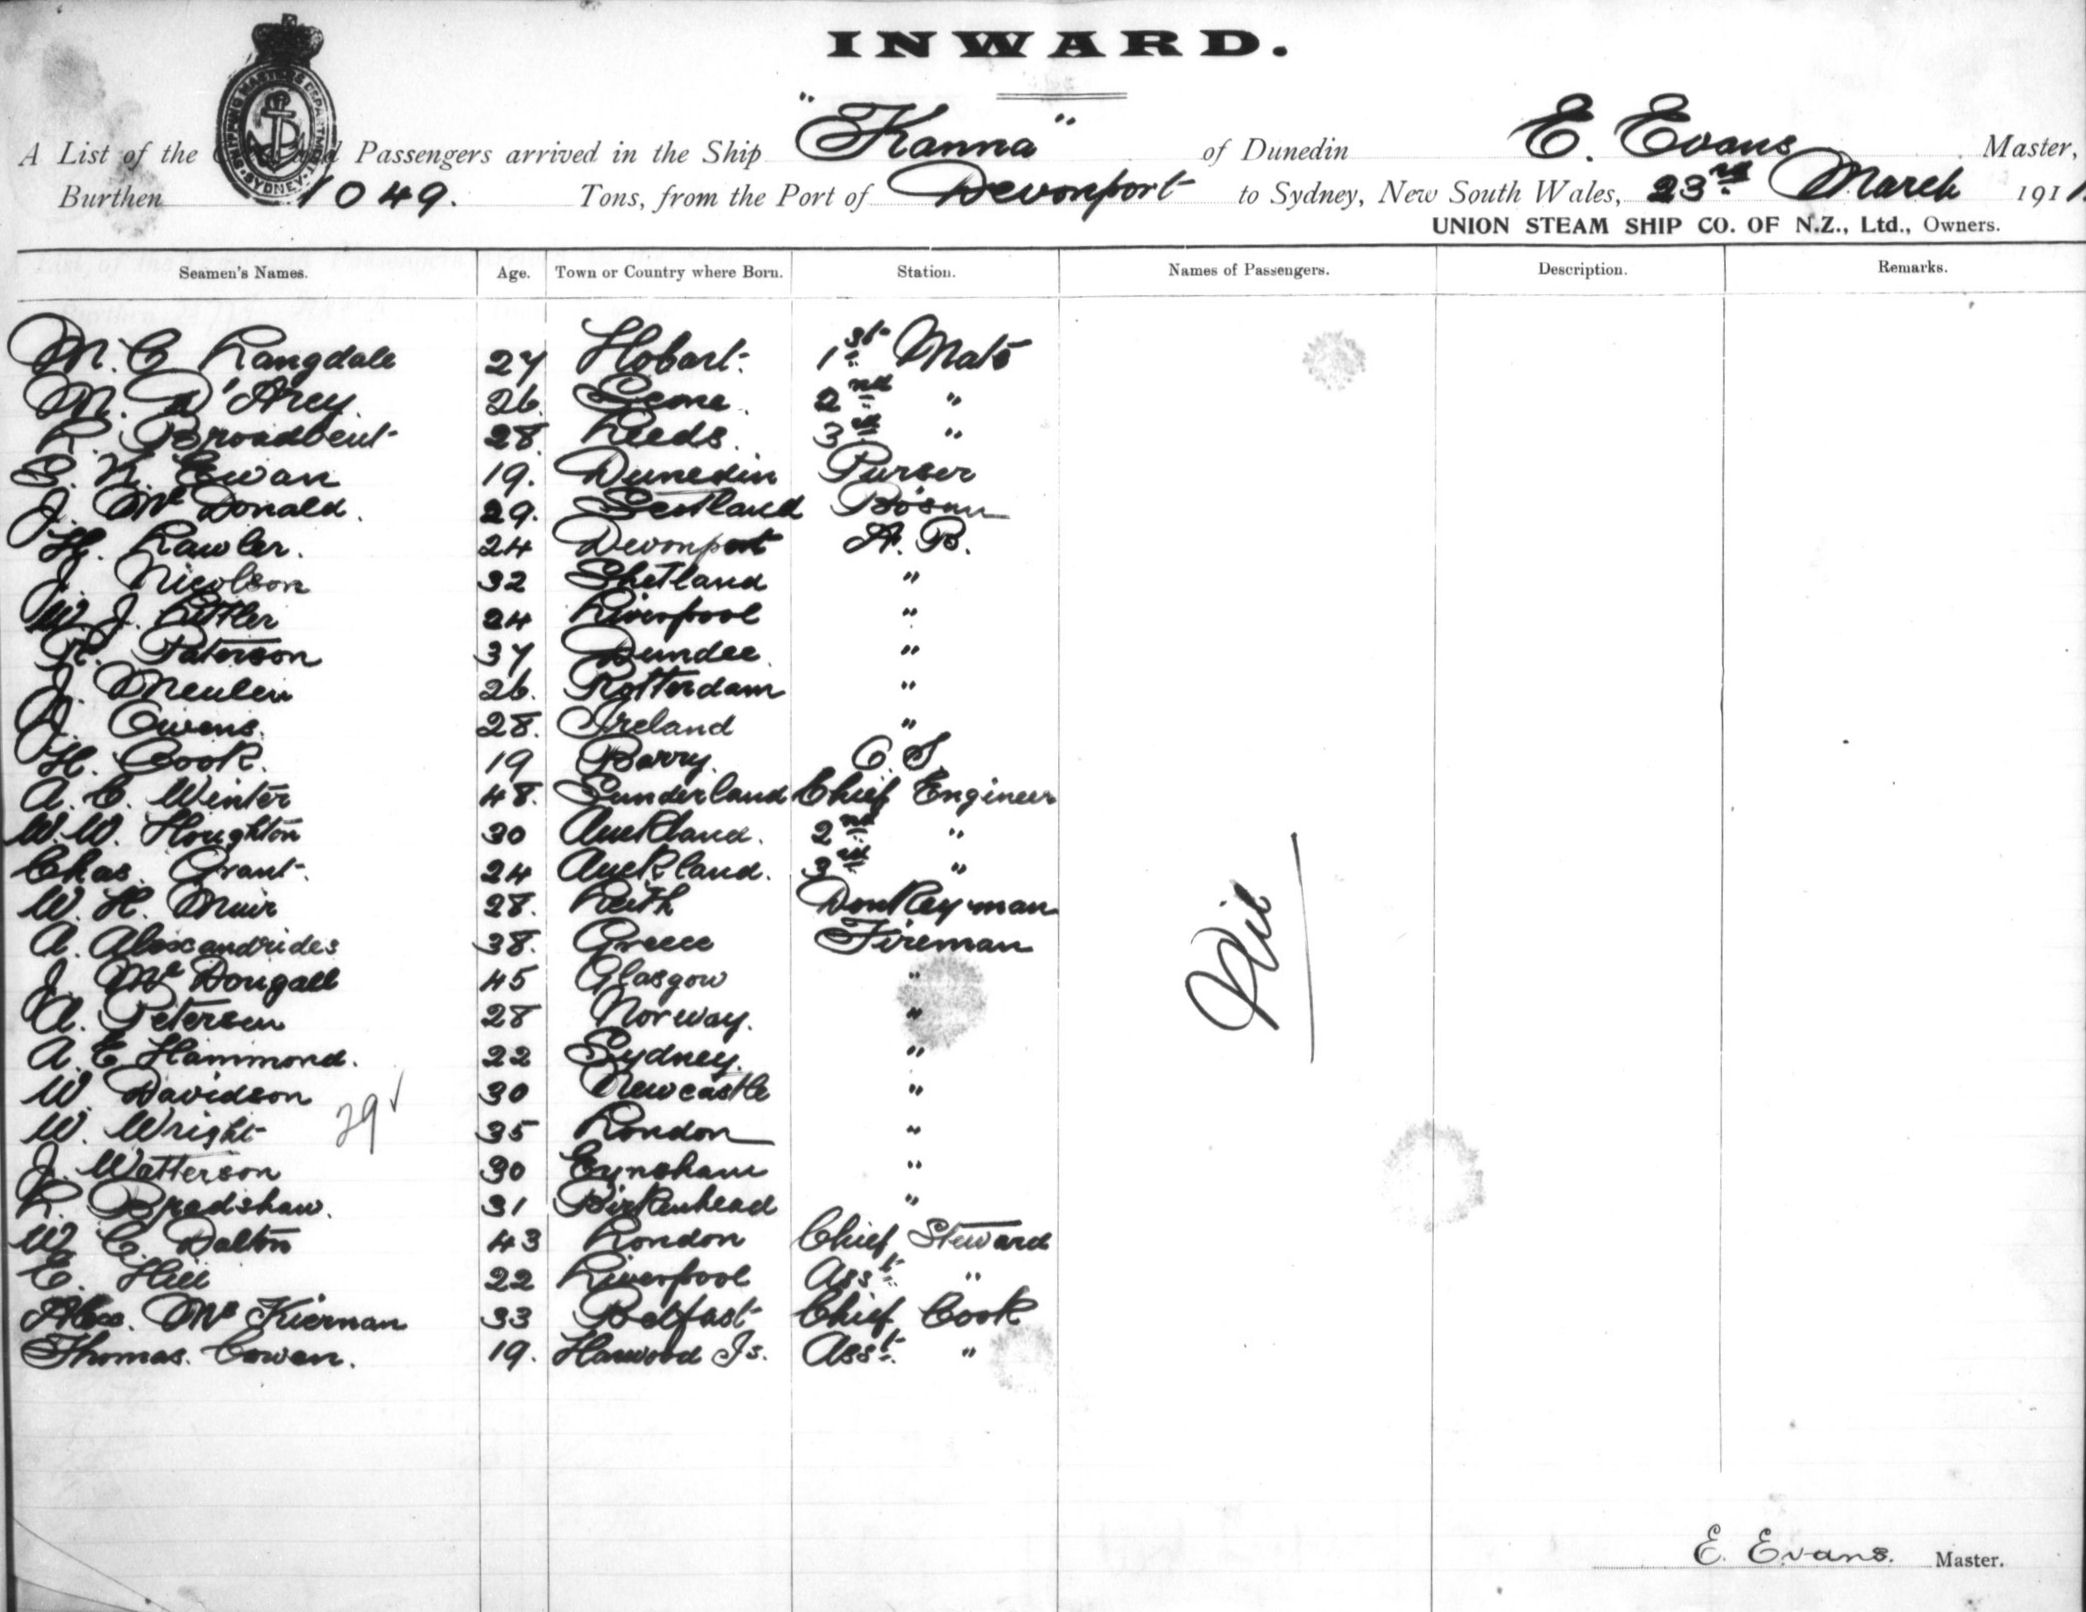 INWARD.
A List of the Crew and Passengers arrived in the Ship "Kanna" of Dunedin E. Evans Master,
Burthen 1049. Tons, from the Port of Devonport to Sydney, New South Wales, 23rd March 1911.
UNION STEAM SHIP CO. OF N.Z., Ltd., Owners.
SHIPPING MASTERS DEPARTMENT SYDNEY
Seamen's Names. Age. Town or Country where Born. Station. Names of Passengers. Description. Remarks.
M. C Langdale 27 Hobart. 1st Mate
M. D'Arcy 26. 2nd "
L. Broadbent 28 Leeds. 3rd "
Ewan 19. Dunedin Purser
J. McDonald. 29. Scotland Bosun
H. Lawler. 24 Devonport A. B.
J. Nicolson 32 Shetland "
W. J. Littler 24 Liverpool "
R. Paterson 37 Dundee. "
J. Meulen 26. Rotterdam "
Owens. 28. Ireland "
H. Cook. 19 Barry. O. S.
A. C. Winter 48. Sunderland Chief Engineer
W. W. Houghton 30 Auckland. 2nd "
Chas. Grant. 24 Auckland. 3rd "
W. H. Muir 28. Leith Donkeyman
A. Alexandrides 38. Greece Fireman
J. McDougall 45 Glasgow "
A. Petersen 28 Norway. "
A. E Hammond. 22 Sydney. "
W. Davidson 30 Newcastle "
W. Wright 29 35 London "
J. Watterson 30 Eynsham "
L. Bradshaw. 31 Birkenhead "
W C. Dalton 43 London Chief Steward
E. Hill 22 Liverpool Asst. "
Alex. McKiernan 33 Belfast Chief Cook
Thomas. Cowan. 19. Harwood Is. Asst. "
Nil
E. Evans. Master.